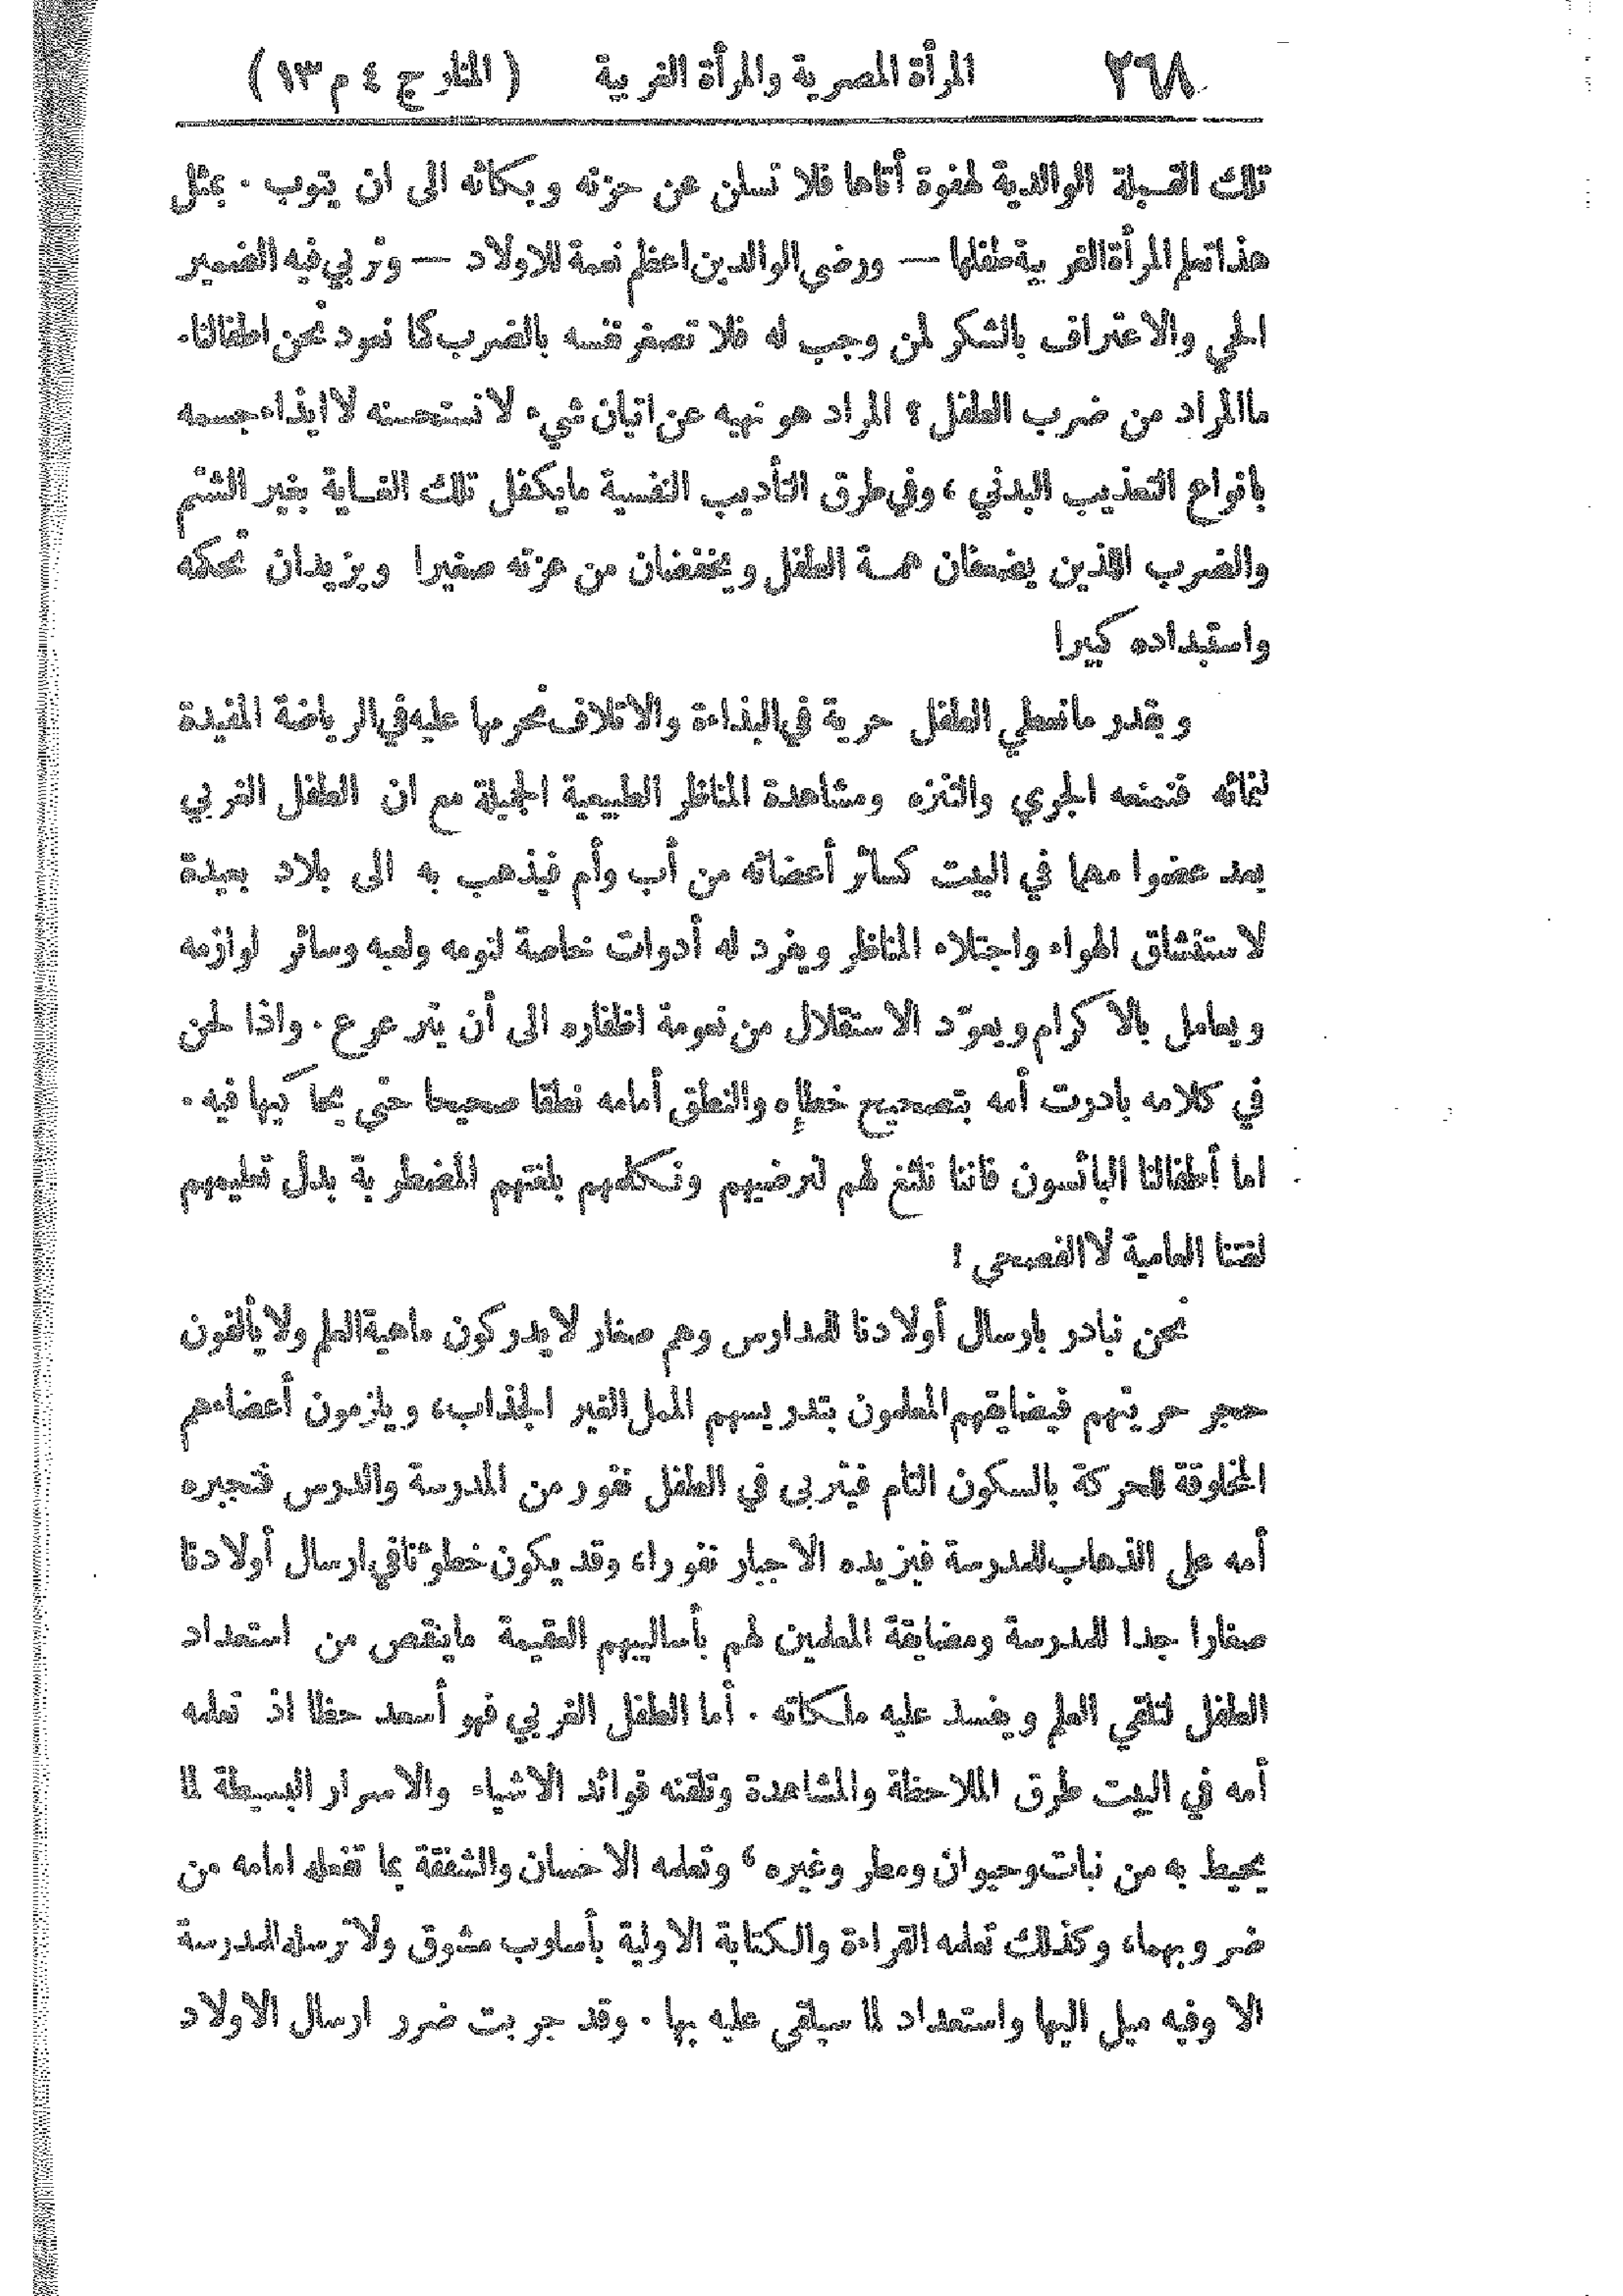 ٢٦٨ المرأة المصرية والمرأة الغربية ( المنار ج ٤ م ١٣ )
تلك القبلة الوالدية لهفوة أتاها فلا تسلن عن حزنه وبكائه الى ان يتوب . بمثل
هذا تعلم المرأة الغربية طفلها — ورضى الوالدين اعظم نعمة للاولاد — وتربي فيه الضمير
الحي والاعتراف بالشكر لمن وجب له فلا تصغر نفسه بالضرب كما نعود نحن اطفالنا .
ما المراد من ضرب الطفل ؟ المراد هو نهيه عن اتيان شيء لا نستحسنه لا ايذاء جسمه
بانواع التعذيب البدني ، وفي طرق التأديب النفسية ما يكفل تلك الغاية بغير الشتم
والضرب اللذين يضعفان همة الطفل ويخفضان من عزته صغيرا ويزيدان تحكمه
واستبداده كبيرا
وبقدر ما نعطي الطفل حرية في البذاءة والاتلاف نحرمها عليه في الرياضة المفيدة
لنمائه فنمنعه الجري والتنزه ومشاهدة المناظر الطبيعية الجميلة مع ان الطفل الغربي
يعد عضوا مهما في البيت كسائر أعضائه من أب وأم فيذهب به الى بلاد بعيدة
لاستنشاق الهواء واجتلاء المناظر ويفرد له أدوات خاصة لنومه ولعبه وسائر لوازمه
ويعامل بالاكرام ويعوّد الاستقلال من نعومة اظفاره الى أن يترعرع . واذا لحن
في كلامه بادرت أمه بتصحيح خطإه والنطق أمامه نطقا صحيحا حتى يحاكيها فيه .
اما أطفالنا البائسون فاننا نلثغ لهم لنرضيهم ونكلمهم بلغتهم المضطربة بدل تعليمهم
لغتنا العامية لا الفصحى !
نحن نبادر بارسال أولادنا للمدارس وهم صغار لا يدركون ماهية العلم ولا يألفون
حجر حريتهم فيضايقهم المعلمون بتدريسهم الممل الغير الجذاب ، ويلزمون أعضاءهم
المخلوقة للحركة بالسكون التام فيتربى في الطفل نفور من المدرسة والدرس فتجبره
أمه على الذهاب للمدرسة فيزيده الاجبار نفورا ، وقد يكون خطؤنا في ارسال أولادنا
صغارا جدا للمدرسة ومضايقة المعلمين لهم بأساليبهم العقيمة ما ينقص من استعداد
الطفل لتلقي العلم ويفسد عليه ملكاته . أما الطفل الغربي فهو أسعد حظا اذ تعلمه
أمه في البيت طرق الملاحظة والمشاهدة وتلقنه فوائد الاشياء والاسرار البسيطة لما
يحيط به من نبات وحيوان ومطر وغيره ، وتعلمه الاحسان والشفقة بما تفعله امامه من
ضروبهما ، وكذلك تعلمه القراءة والكتابة الاولية بأسلوب مشوق ولا ترسله للمدرسة
الا وفيه ميل اليها واستعداد لما سيلقى عليه بها . وقد جربت ضرر ارسال الاولاد